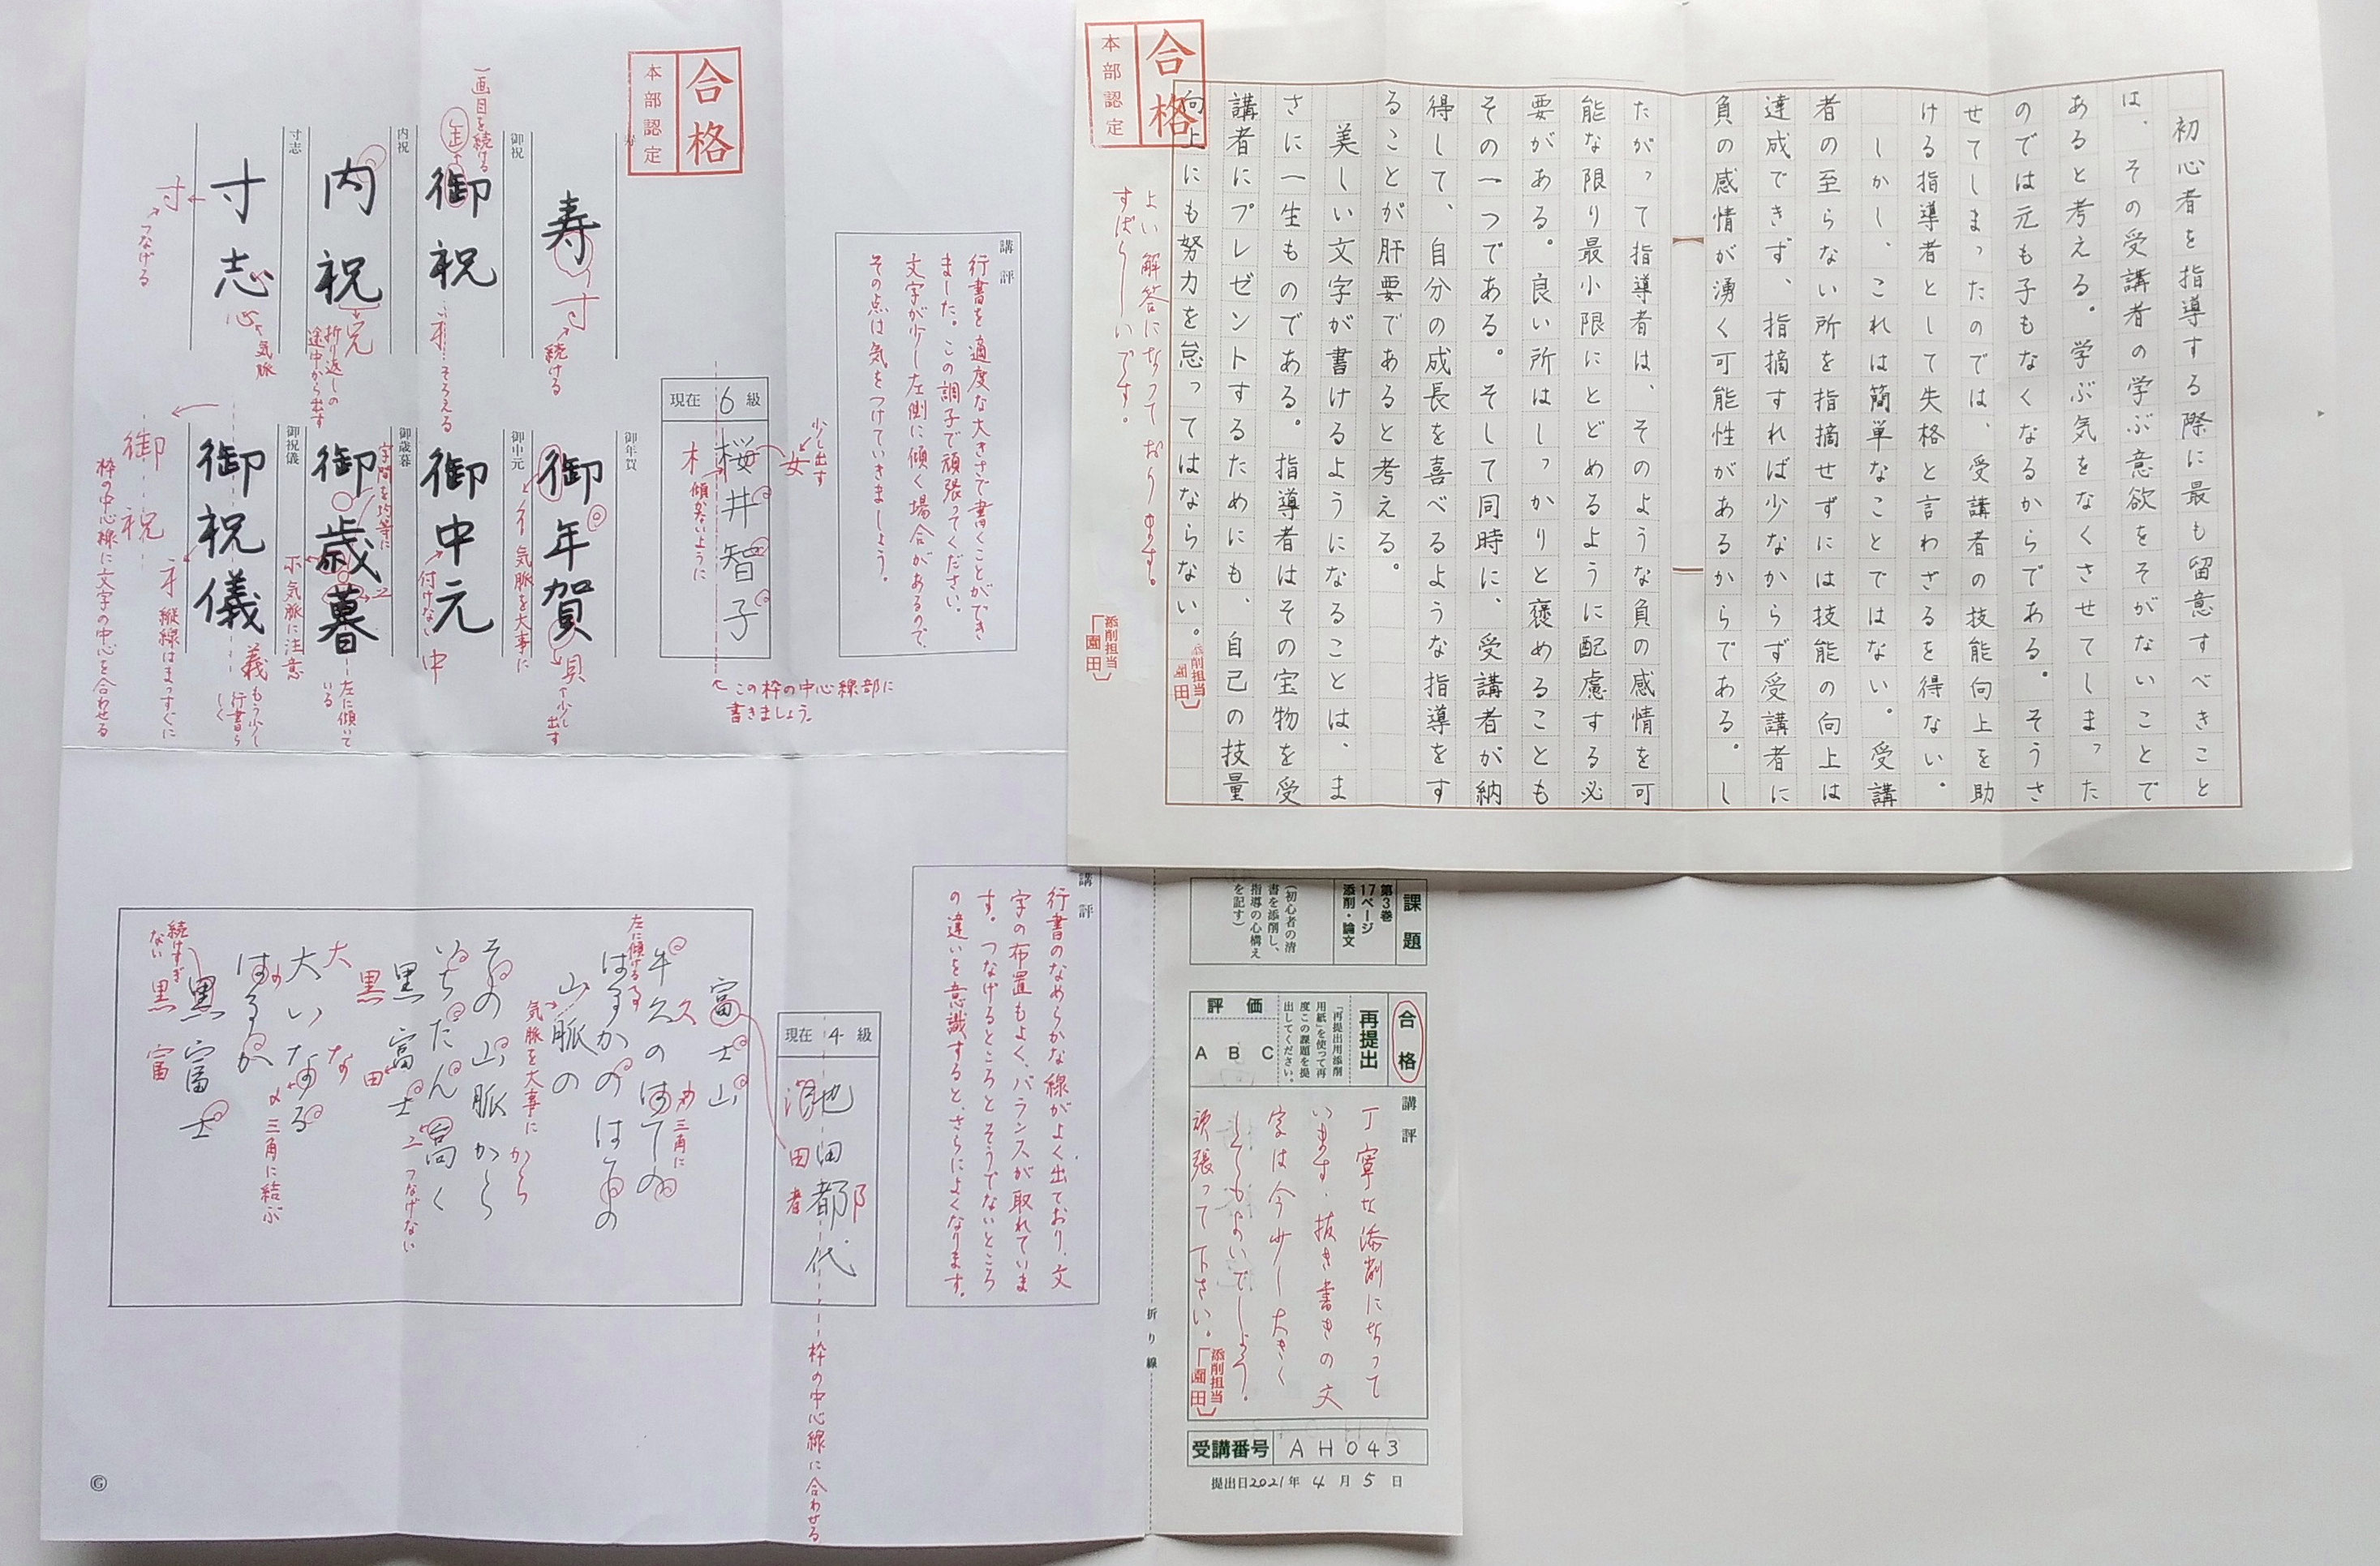 初心者を指導する際に最も留意すべきこと
は、その受講者の学ぶ意欲をそがないことで
あると考える。学ぶ気をなくさせてしまった
のでは元も子もなくなるからである。そうさ
せてしまったのでは、受講者の技能向上を助
ける指導者として失格と言わざるを得ない。
しかし、これは簡単なことではない。受講
者の至らない所を指摘せずには技能の向上は
達成できず、指摘すれば少なからず受講者に
負の感情が湧く可能性があるからである。し
たがって指導者は、そのような負の感情を可
能な限り最小限にとどめるように配慮する必
要がある。良い所はしっかりと褒めることも
その一つである。そして同時に、受講者が納
得して、自分の成長を喜べるような指導をす
ることが肝要であると考える。
美しい文字が書けるようになることは、ま
さに一生ものである。指導者はその宝物を受
講者にプレゼントするためにも、自己の技量
向上にも努力を怠ってはならない。
添削担当
園田
合格
本部認定
よい解答になっております。
すばらしいです。
添削担当
園田
講評
行書を適度な大きさで書くことができ
ました。この調子で頑張ってください。
文字が少し左側に傾く場合があるので、
その点は気をつけていきましょう。
合格
本部認定
現在 6 級
桜井智子
少し出す
女
木
傾かないように
この枠の中心線部に
書きましょう。
寿
寿
寸
続ける
御祝
御祝
一画目を続ける
そろえる
内祝
内祝
折り返しの
途中から出す
寸志
寸志
寸
つなげる
心
気脈
御年賀
御年賀
気脈を大事に
貝
少し
出す
御中元
御中元
付けない
中
御歳暮
御歳暮
字間を均等に
気脈に注意
左に傾いて
いる
御祝儀
御祝儀
縦線はまっすぐに
義
もう少し
行書ら
しく
御祝
枠の中心線に文字の中心を合わせる
講評
行書のなめらかな線がよく出ており、文
字の布置もよく、バランスが取れていま
す。つなげるところとそうでないところ
の違いを意識すると、さらによくなります。
現在 4 級
池田都代
田
者
枠の中心線に合わせる
富士山
年久のはての
はるかのはての
山脈の
その山脈から
いちだん高く
黒富士
大いなる
はるか
黒富士
左に傾ける
久
三角に
気脈を大事に
から
つなげない
田
黒
大
な
三角に結ぶ
続けすぎ
ない
黒
富
折り線
Ⓖ
課題
第3巻
17ページ
添削・論文
(初心者の清
書を添削し、
指導の心構え
を記す)
合格
再提出
「再提出用添削
用紙」を使って再
度この課題を提
出してください。
評価
A B C
講評
丁寧な添削になって
います。抜き書きの文
字は今少し大きく
してもよいでしょう。
頑張って下さい。
添削担当
園田
受講番号 AH043
提出日2021年 4月 5日